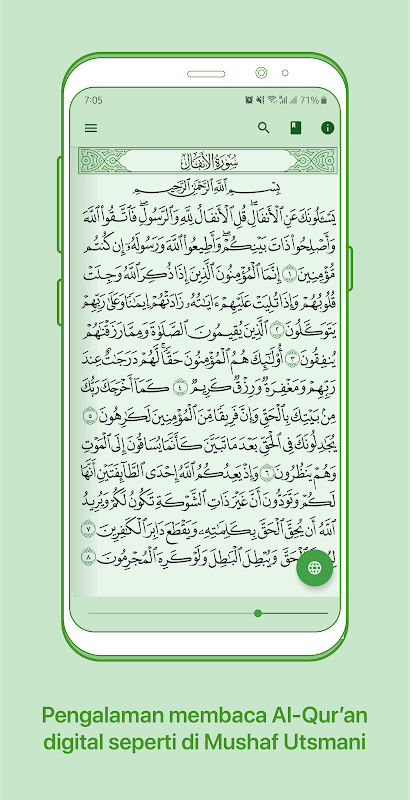 7:05
71%
سُورَةُ الأَنفَالِ
بِسْمِ اللَّهِ الرَّحْمَٰنِ الرَّحِيمِ
يَسْـَٔلُونَكَ عَنِ الْأَنفَالِ ۖ قُلِ الْأَنفَالُ لِلَّهِ وَالرَّسُولِ ۖ فَاتَّقُوا اللَّهَ
وَأَصْلِحُوا ذَاتَ بَيْنِكُمْ ۖ وَأَطِيعُوا اللَّهَ وَرَسُولَهُ إِن كُنتُم
مُّؤْمِنِينَ ١ إِنَّمَا الْمُؤْمِنُونَ الَّذِينَ إِذَا ذُكِرَ اللَّهُ وَجِلَتْ
قُلُوبُهُمْ وَإِذَا تُلِيَتْ عَلَيْهِمْ ءَايَٰتُهُ زَادَتْهُمْ إِيمَٰنًا وَعَلَىٰ رَبِّهِمْ
يَتَوَكَّلُونَ ٢ الَّذِينَ يُقِيمُونَ الصَّلَوٰةَ وَمِمَّا رَزَقْنَٰهُمْ
يُنفِقُونَ ٣ أُولَٰئِكَ هُمُ الْمُؤْمِنُونَ حَقًّا ۚ لَّهُمْ دَرَجَٰتٌ عِندَ
رَبِّهِمْ وَمَغْفِرَةٌ وَرِزْقٌ كَرِيمٌ ٤ كَمَا أَخْرَجَكَ رَبُّكَ
مِن بَيْتِكَ بِالْحَقِّ وَإِنَّ فَرِيقًا مِّنَ الْمُؤْمِنِينَ لَكَٰرِهُونَ ٥
يُجَٰدِلُونَكَ فِي الْحَقِّ بَعْدَ مَا تَبَيَّنَ كَأَنَّمَا يُسَاقُونَ إِلَى الْمَوْتِ
وَهُمْ يَنظُرُونَ ٦ وَإِذْ يَعِدُكُمُ اللَّهُ إِحْدَى الطَّائِفَتَيْنِ أَنَّهَا
لَكُمْ وَتَوَدُّونَ أَنَّ غَيْرَ ذَاتِ الشَّوْكَةِ تَكُونُ لَكُمْ وَيُرِيدُ
اللَّهُ أَن يُحِقَّ الْحَقَّ بِكَلِمَٰتِهِ وَيَقْطَعَ دَابِرَ الْكَٰفِرِينَ ٧
لِيُحِقَّ الْحَقَّ وَيُبْطِلَ الْبَٰطِلَ وَلَوْ كَرِهَ الْمُجْرِمُونَ ٨
Pengalaman membaca Al-Qur’an
digital seperti di Mushaf Utsmani